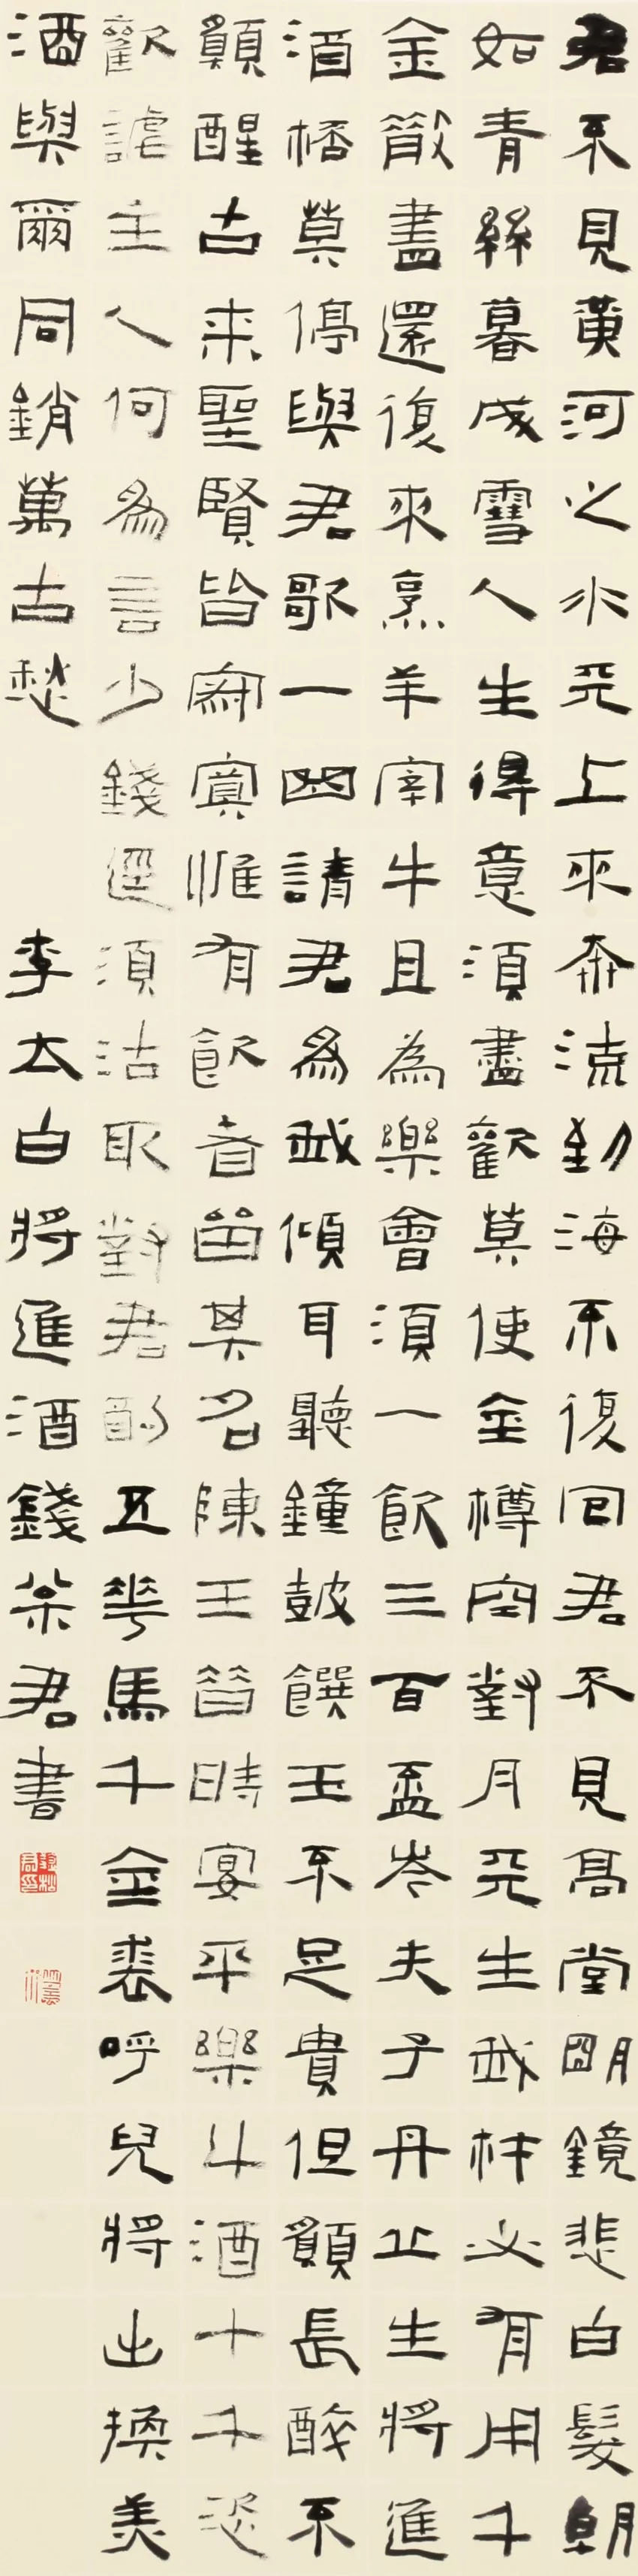 君不見黃河之水天上來奔流到海不復回君不見高堂明鏡悲白髮朝
如青絲暮成雪人生得意須盡歡莫使金樽空對月天生我材必有用千
金散盡還復來烹羊宰牛且為樂會須一飲三百盃岑夫子丹丘生將進
酒桮莫停與君歌一曲請君為我傾耳聽鐘鼓饌玉不足貴但願長醉不
願醒古来聖賢皆寂寞惟有飲者留其名陳王昔時宴平樂斗酒十千恣
歡謔主人何為言少錢逕須沽取對君酌五花馬千金裘呼兒將出換美
酒與爾同銷萬古愁 李太白將進酒錢枀君書